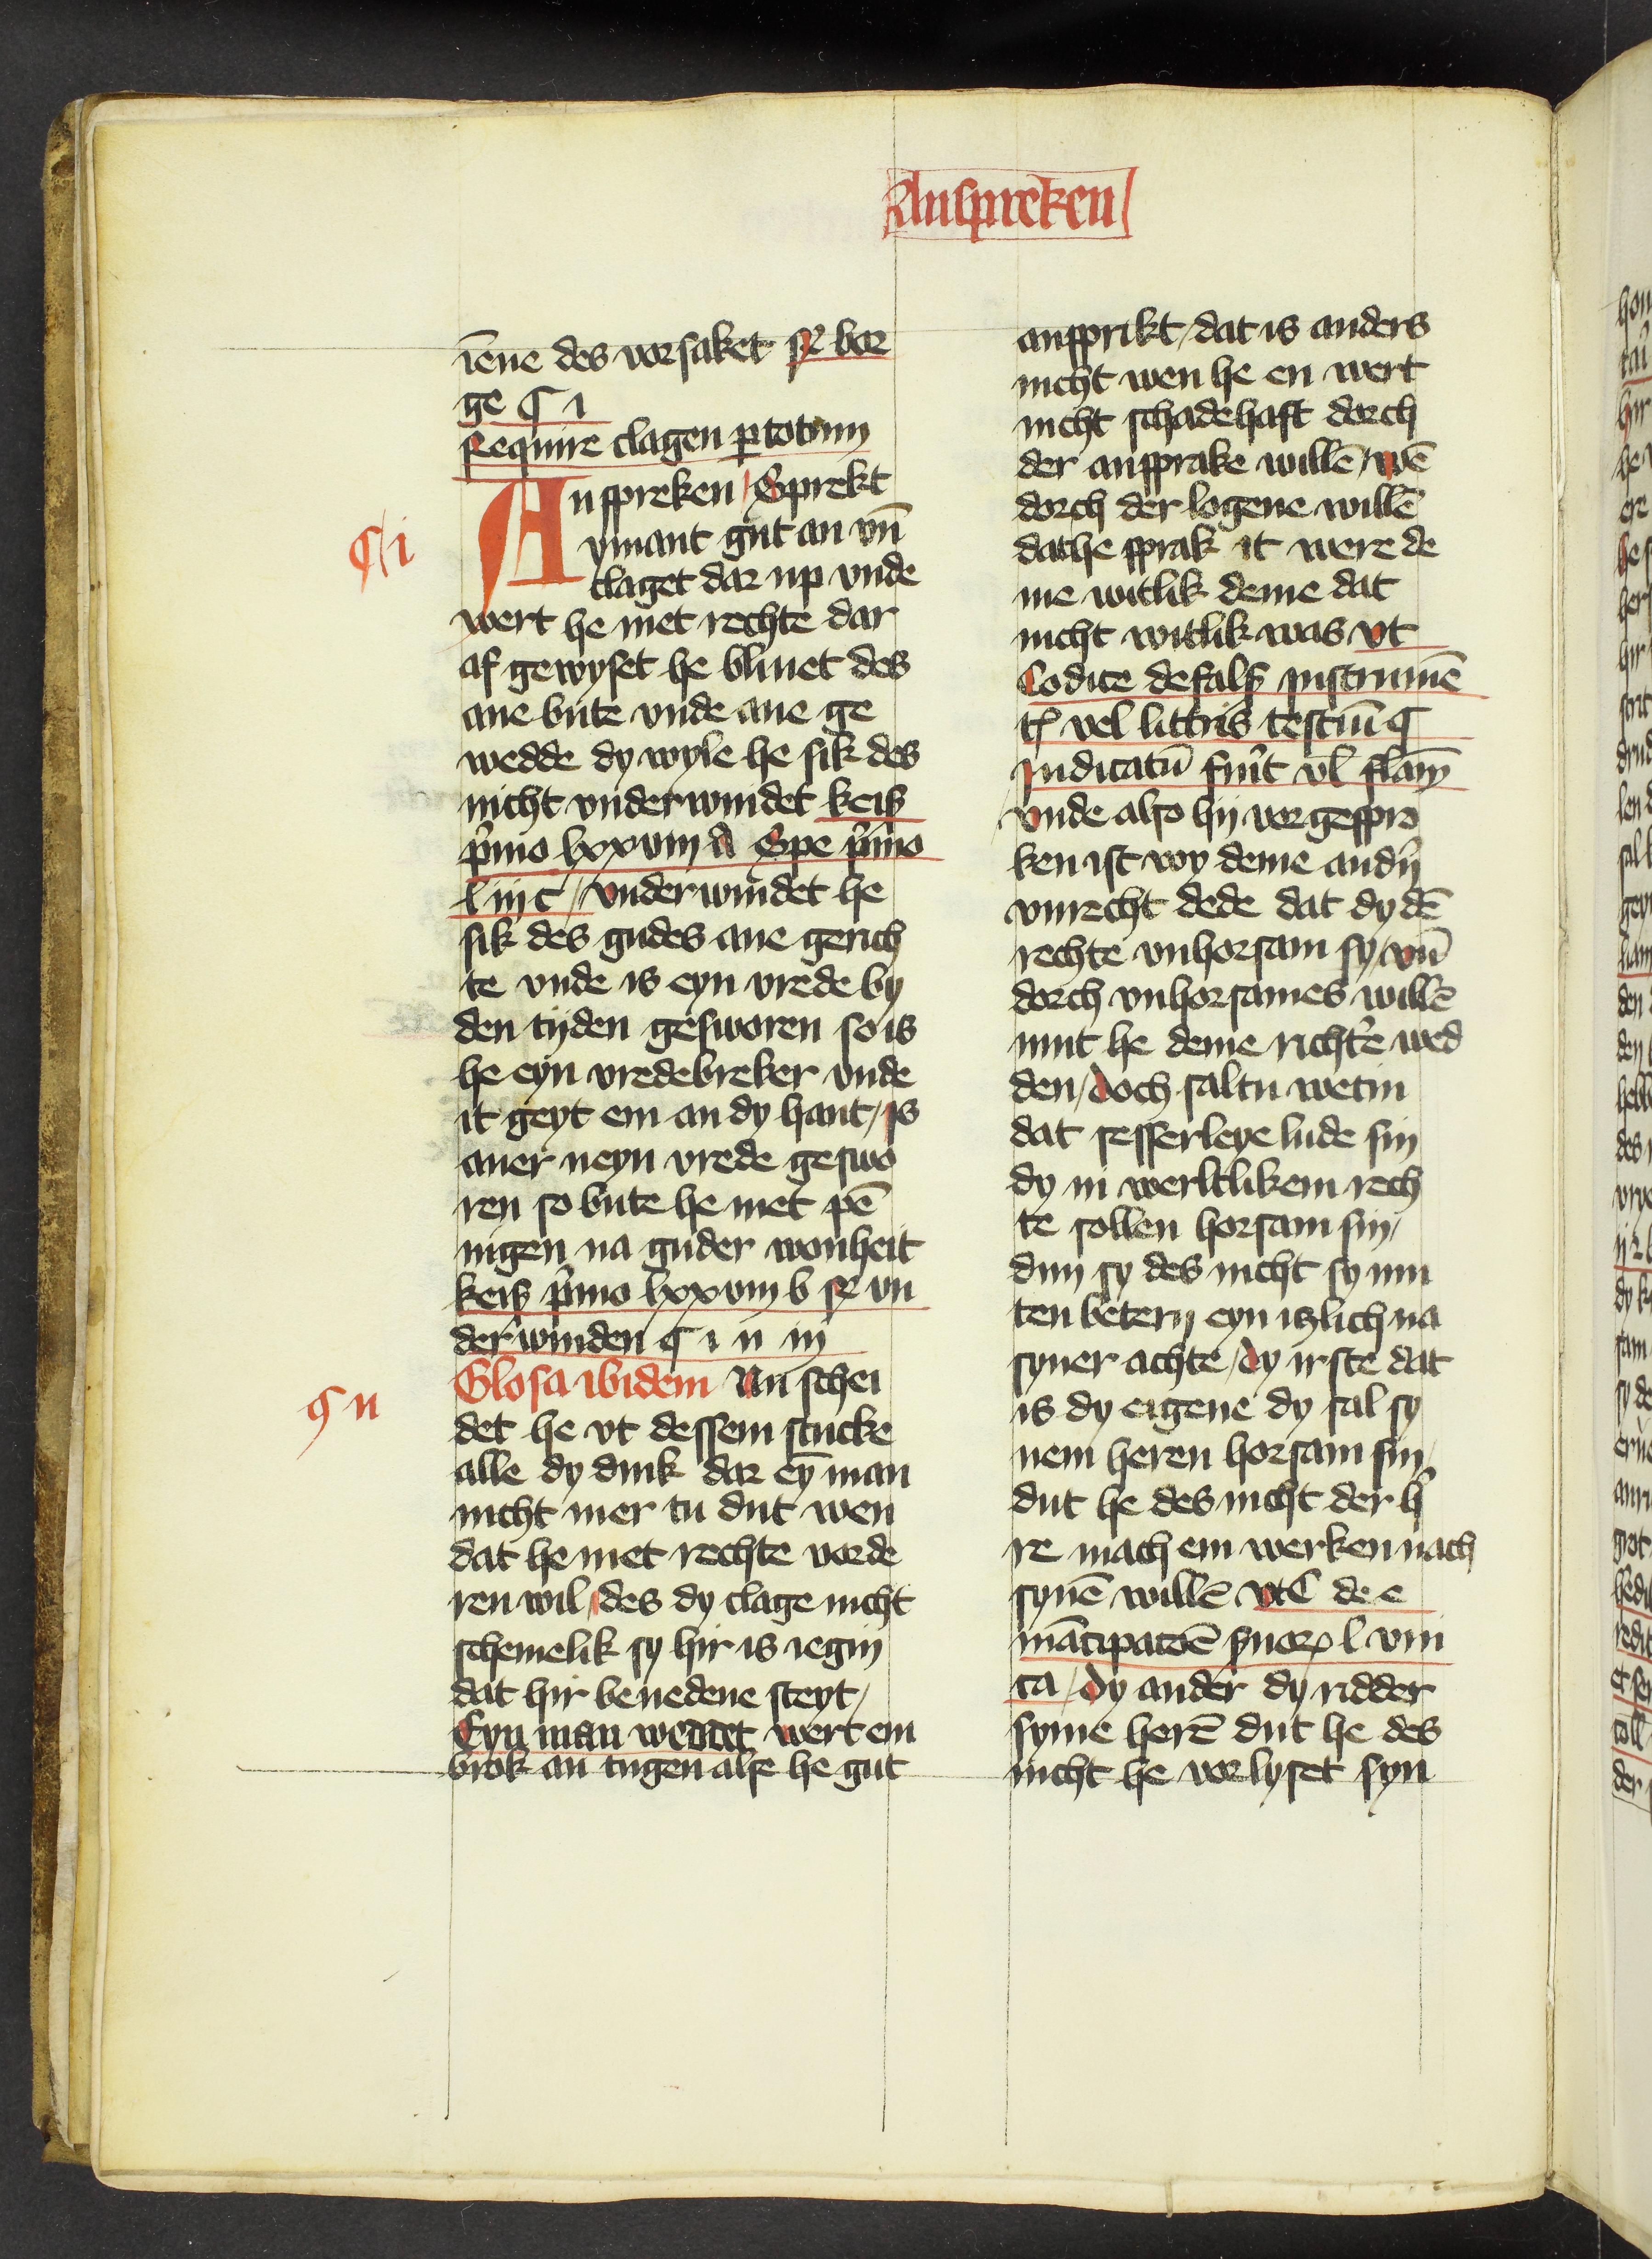 Anspreken
iēne des vorsaket R bor
ge ¶ i
Require clagen ꝑ totum
¶ i
Anspreken / Sprekt
ymant gut an vn̄
claget dar up vnde
wert he met rechte dar
af gewyset he bliuet des
ane bute vnde ane ge
wedde dy wyle he sik des
nicht vnderwindet keiß
pͥmo lxxviij a Spe pͥmo
liij c / vnderwindet he
sik des gudes ane gerich
te vnde is eyn vrede by
den tijden gesworen so is
he eyn vredebreker vnde
it geyt em an dy hant / is
auer neyn vrede geswo
ren so bute he met pē
nigen na guder wonheit
keiß pͥmo lxxviij b R vn
derwinden ¶ i ii iij
¶ ii
Glosa ibidem Nu schei
det he vt dessem stucke
alle dy dink dar ey̅ man
nicht mer tu dut wen
dat he met rechte vorde
ren wil / des dy clage nicht
schemelik sy hir is iegin
dat hir benedene steyt /
Eyn man weddet wert em
brok an tugen alse he gut
ansprikt / dat is anders
nicht wen he en wert
nicht schadehaft dorch
der ansprake willē / wē
dorch der logene willē
dat he sprak it were de
me witlik deme dat
nicht witlik was vt
Codice de fals instrumē
tꝭ vel littris testiū ¶
Iudicatū fuit vl
vnde also hij vor gespro
ken ist woy deme andn̄
vnrecht dede dat dy dē
rechte vnhorsam sy / vn̄
dorch vnhorsames willē
mut he deme richtere wed
den / doch saltu wetin
dat sesserleye lude sin
dy in werltlikem rech
te sollen horsam sin /
dun sy des nicht sy mu
ten betern eyn itzlich na
syner achte / dy irste dat
is dy eigene dy sal sy
nem heren horsam sin /
dut he des nicht der he
re mach em werken nach
synē willē vt C de e
mācipatōē l vni
ca / dy ander dy ridder
syme herē dut he des
nicht he vorlyset syn